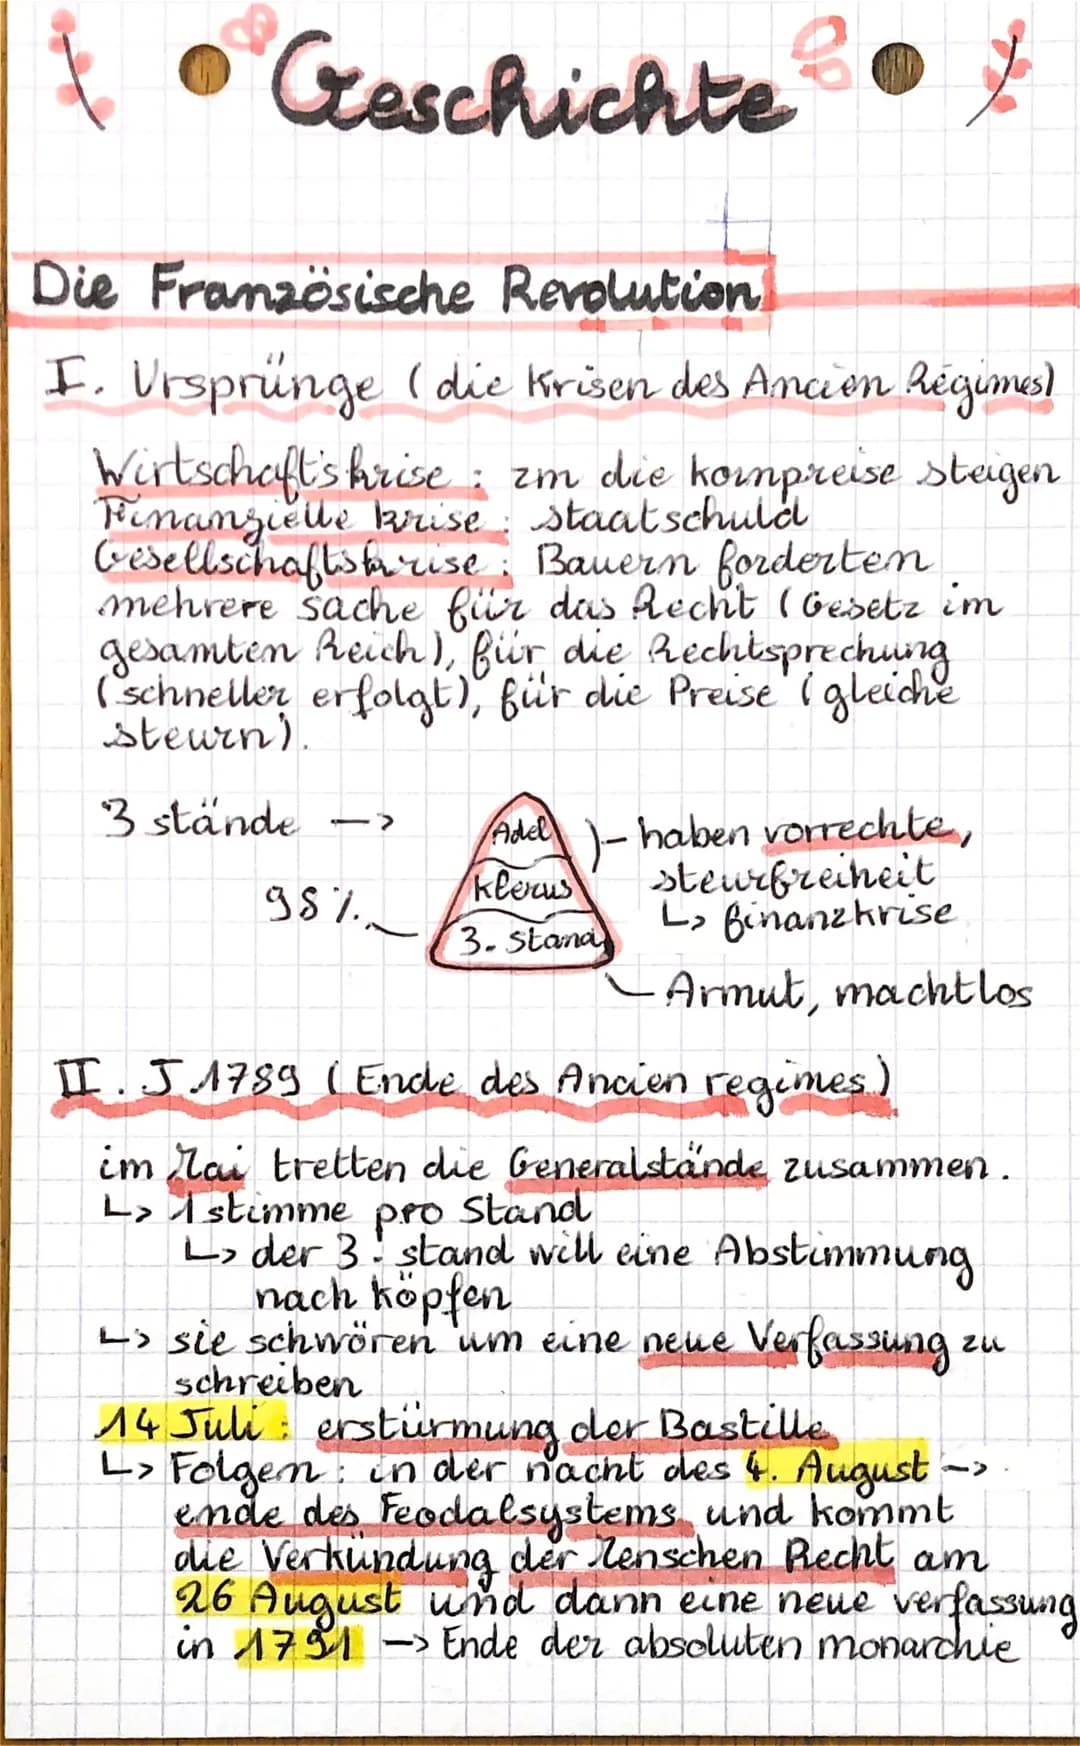 Geschichte
Die Französische Revolution
I. Ursprünge (die Krisen des Ancien Régimes)
Wirtschaft'skrise : zm die kornpreise steigen
Finanzielle krise : staatschuld
Gesellschaftskrise : Bauern forderten
mehrere sache für das Recht (Gesetz im
gesamten Reich), für die Rechtsprechung
(schneller erfolgt), für die Preise (gleiche
steurn).
3 stände -->
Adel
Klerus
3. Stand
98%
haben vorrechte,
steurfreiheit
↳ finanzkrise
Armut, machtlos
II. J 1789 (Ende des Ancien regimes)
im Mai tretten die Generalstände zusammen.
↳ 1 stimme pro Stand
↳ der 3. stand will eine Abstimmung
nach köpfen
↳ sie schwören um eine neue Verfassung zu
schreiben
14 Juli : erstürmung der Bastille
↳ Folgen : in der nacht des 4. August -->
ende des Feodalsystems und kommt
die Verkündung der Menschen Recht am
26 August und dann eine neue verfassung
in 1791 --> Ende der absoluten monarchie